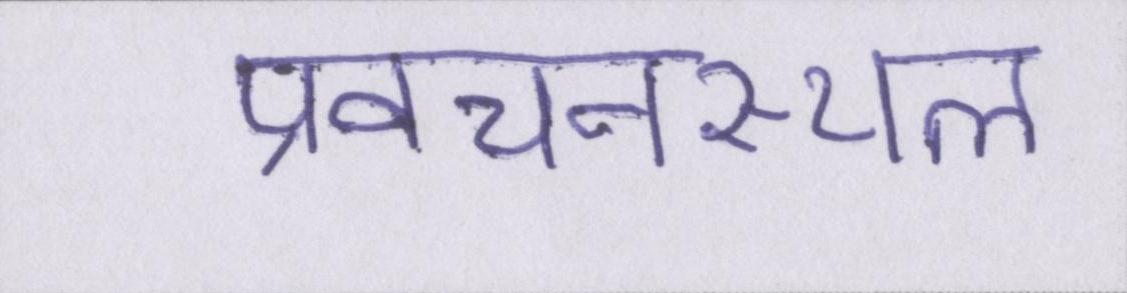 प्रवचनस्थल